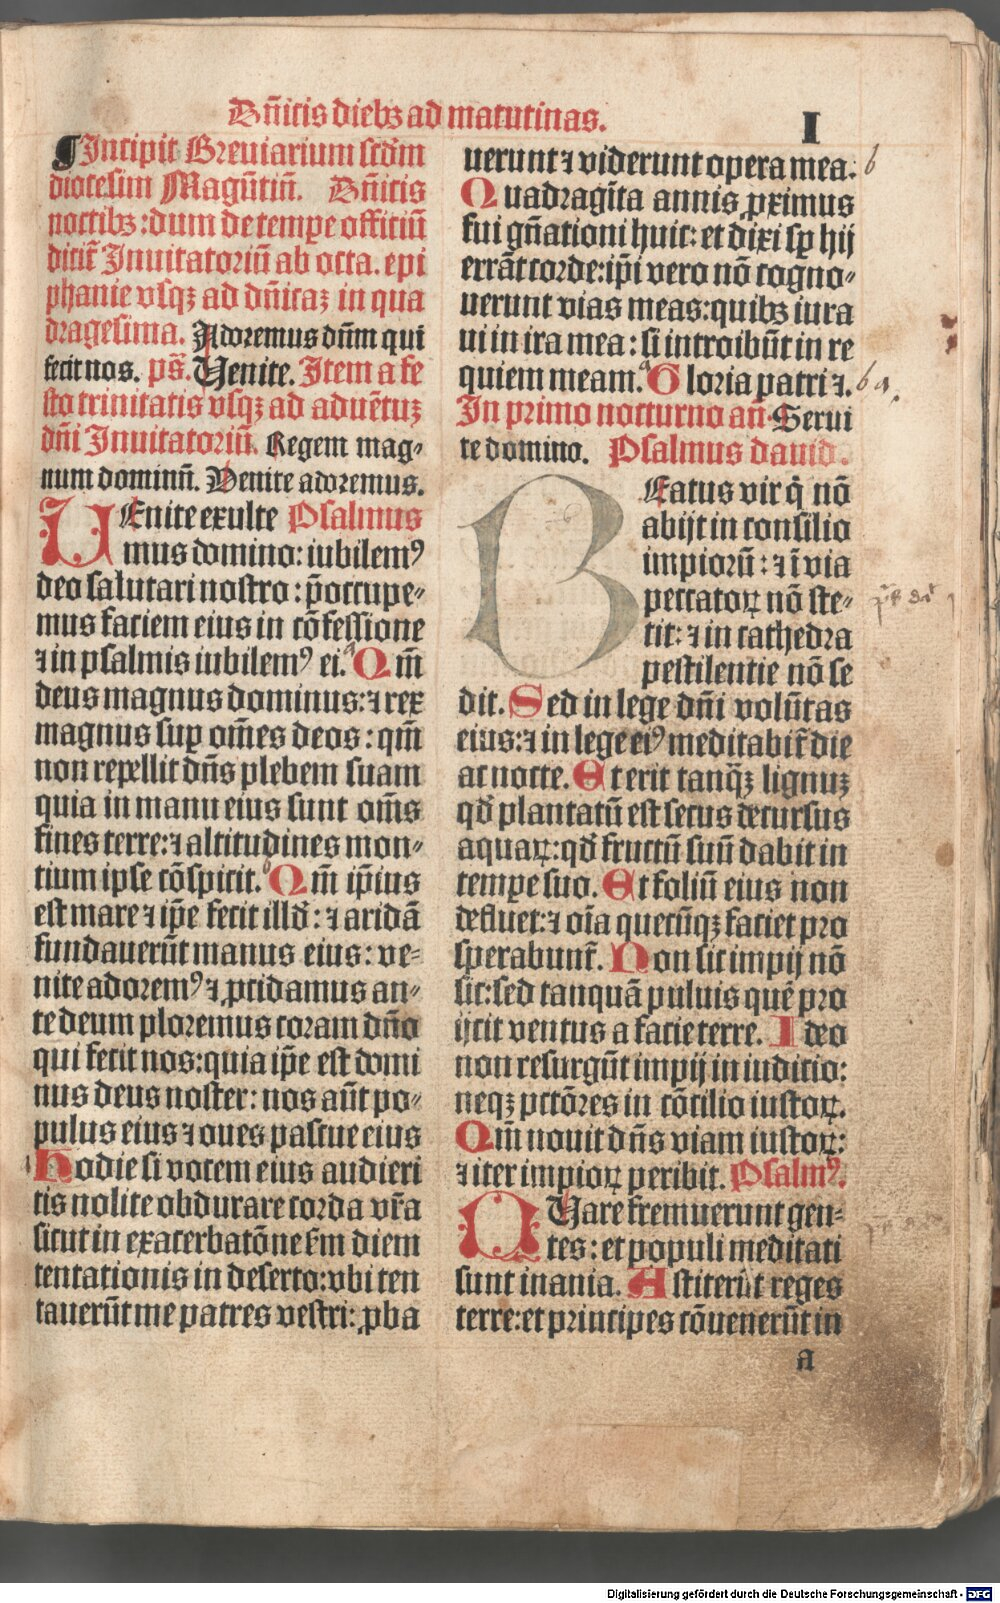 Dn̄icis diebꝫ ad matutinas.
I
¶Incipit Breuiarium scd̄m
diocesim Magūtiñ. Dn̄icis
noctibꝫ: dum de tempe officiū
dicit̄ Inuitatoriū ab octa. epi
phanie vsqꝫ ad dn̄icaꝫ in qua
dragesima. Adoremus dn̄m qui
fecit nos. ps̄. Venite. Item a fe
sto trinitatis vsqꝫ ad aduētuꝫ
dn̄i Inuitatoriū. Regem mag⸗
num dominū. Venite adoremus.
VEnite exulte Psalmus
mus domino: iubilemꝰ
deo salutari nostro: p̄occupe⸗
mus faciem eius in cōfessione
⁊ in psalmis iubilemꝰ ei. Qm̄
deus magnus dominus: ⁊ rex
magnus suꝑ om̄es deos: qm̄
non repellit dn̄s plebem suam
quia in manu eius sunt om̄s
fines terre: ⁊ altitudines mon⸗
tium ipse cōspicit. Qm̄ ip̄ius
est mare ⁊ ip̄e fecit illd̄: ⁊ aridā
fundauerūt manus eius: ve⸗
nite adoremꝰ ⁊ ꝓcidamus an⸗
te deum ploremus coram dn̄o
qui fecit nos: quia ip̄e est domi
nus deus noster: nos aūt po⸗
pulus eius ⁊ oues pascue eius
Hodie si vocem eius audieri
tis nolite obdurare corda vr̄a
sicut in exacerbatōne s̄m diem
tentationis in deserto: vbi ten
tauerūt me patres vestri: ꝓba
uerunt ⁊ viderunt opera mea. b
Quadragīta annis ꝓximus
fui gn̄ationi huic: et dixi sꝑ hij
errāt corde: ip̄i vero nō cogno⸗
uerunt vias meas: quibꝫ iura
ui in ira mea: si introibūt in re
quiem meam. Gloria patri ⁊. b a.
In primo nocturno an̄. Serui
te domino. Psalmus dauid.
BEatus vir q̄ nō
abijt in consilio
impiorū: ⁊ ī via
peccatoꝝ nō ste⸗
tit: ⁊ in cathedra
pestilentie nō se
dit. Sed in lege dn̄i volūtas
eius: ⁊ in lege eiꝰ meditabit̄ die
ac nocte. Et erit tanqꝫ̄ lignuꝫ
qd̄ plantatū est secus decursus
aquaꝝ: qd̄ fructū suū dabit in
tempe suo. Et foliū eius non
defluet: ⁊ oīa quecūqꝫ faciet pro
sperabunt̄. Non sic impij nō
sic: sed tanquā puluis quē pro
ijcit ventus a facie terre. Ideo
non resurgūt impij in iudicio:
neqꝫ pctōres in cōcilio iustoꝝ.
Qm̄ nouit dn̄s viam iustoꝝ:
⁊ iter impioꝝ peribit. Psalmꝰ.
QVare fremuerunt gen⸗
tes: et populi meditati
sunt inania. Astiterūt reges
terre: et principes cōuenerūt in
a
Digitalisierung gefördert durch die Deutsche Forschungsgemeinschaft - DFG